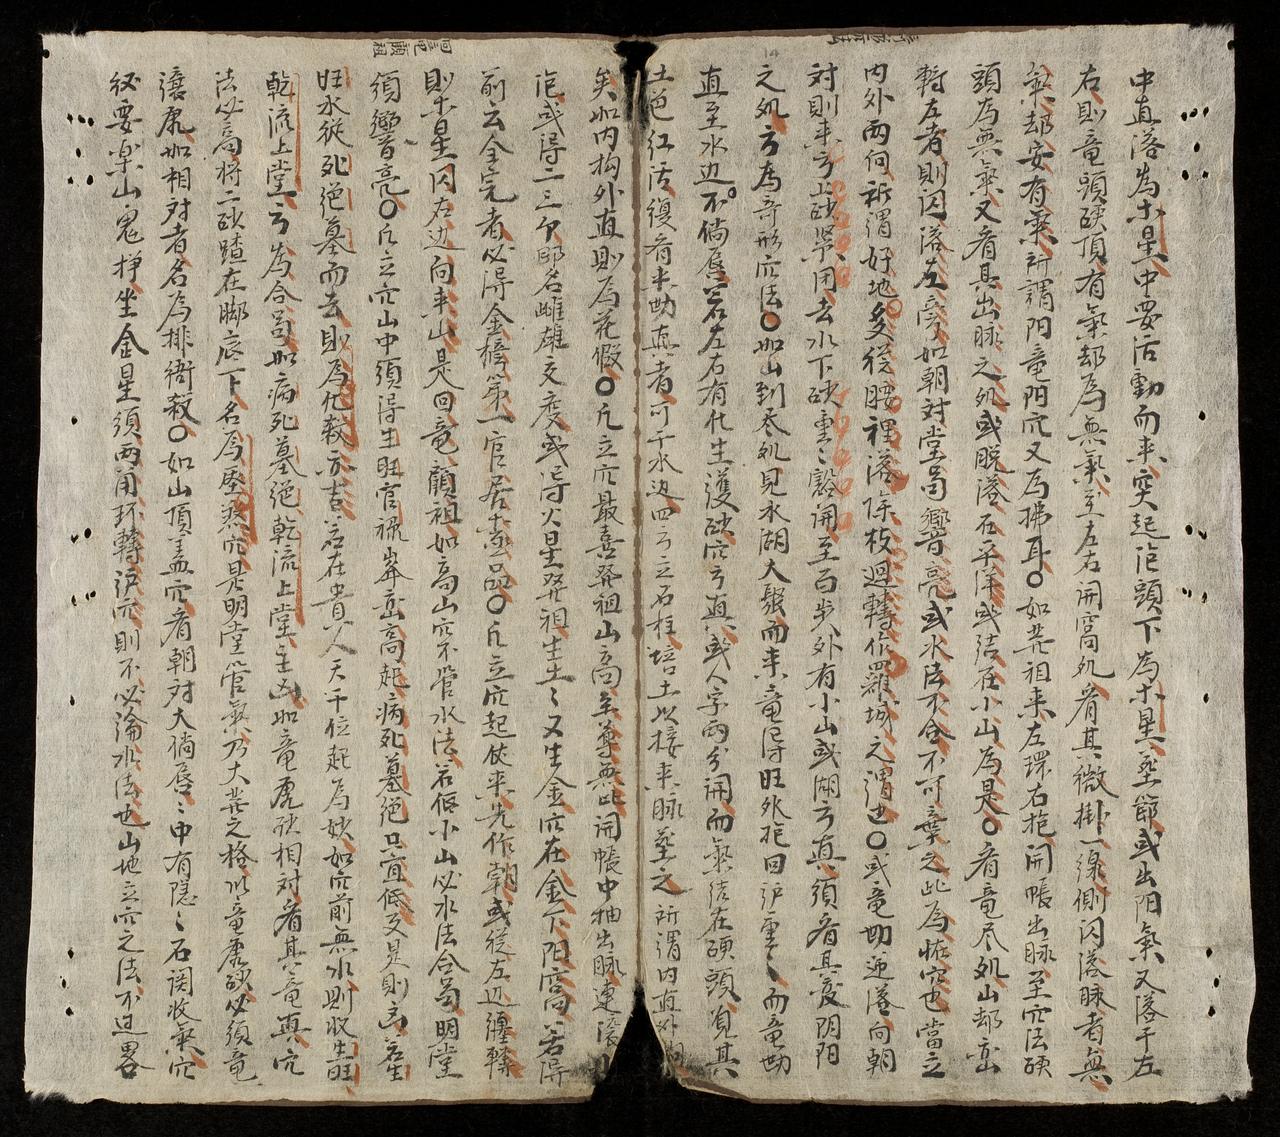 中直落為木星中要活動而来突起㐌頭下為木星至節或出阳氣又落于左
右則竜頭硖頂有氣却為無氣至左右開窩処看其微掛一線側闪落脉者無
氣却安有氣所謂阳竜阳穴又為拂耳〇如花祖来左環右抱開帳出脉至穴法硬
頭為無氣又看其出脉之処或脱落在平洋或结在小山為是〇看竜尽処山却
轉左者則闪落左旁如朝对堂局響亮或水法不合不可棄之此為怪穴也當立
内外兩向所謂好地多從腰裡落除枝迴轉作羅城之謂也〇或竜坳逆落向朝
对則来方止硖緊用去水下硖重〻谿開至百步外有小山或湖方真須看其变阴阳
之処方為奇形穴法〇如山到尽処見水湖大聚而来竜得旺外抱回重〻而竜坳
直至水边不倘唇若左右有化生護硖穴方真或人字两分開而氣结在硬頭見其
土色紅活復有来坳真者可于水边四方立石柱培土以接来脉至之所謂内直外
矣如内拘外直則為花假〇凡立穴最喜発祖山高至尊無比開帳中抽出脉連
㐌或得二三節却名雌雄交度或得火星発祖生土〻又生金穴在金下阳窩若得
前云全完者必得金榜第一官居壹品〇凡立穴起伏来先作朝或從左边纏轉
則木星闪右边向来山是回竜顧祖如高山穴不管水法若低小山必水法合局明堂
須響亮〇凡立穴山中須得生旺官禄峯峦高起病死墓绝只宜低文是則方
旺水從死绝墓而去則為化殺亦吉若在貴人天干位起為妙如穴前無水則收生旺
乾流上堂方為合局如病死墓绝乾流上堂主凶如竜虎硖相对看其竜真穴
法必高将二硖蹅在脚底下名為壓煞穴是明堂管氣乃大花之格必竜虎硖必須竜
讓虎如相对者名為排衙殺〇如山頂盖穴看朝对大倘唇〻中有隠〻石関收氣穴
必要楽山鬼挣坐金星須两角环轉穴則不必論水法也山地立穴之法不过畧